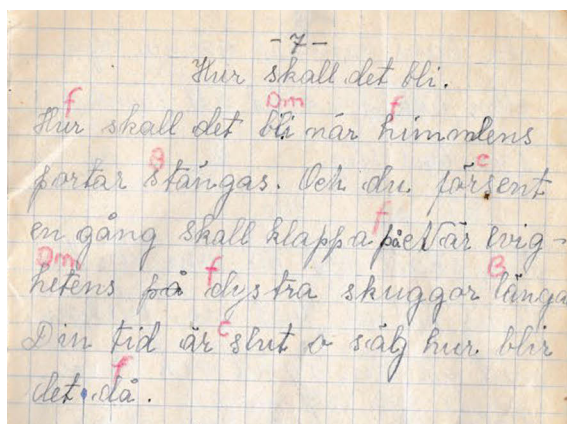 - 7 -
Hur skall det bli.
f Dm f
Hur skall det bli när himmlens
B c
portar stängas. Och du försent
f
en gång skall klappa på När evig-
Dm f B
hetens på dystra skuggor långa
c
Din tid är slut o säg hur blir
f
det då.